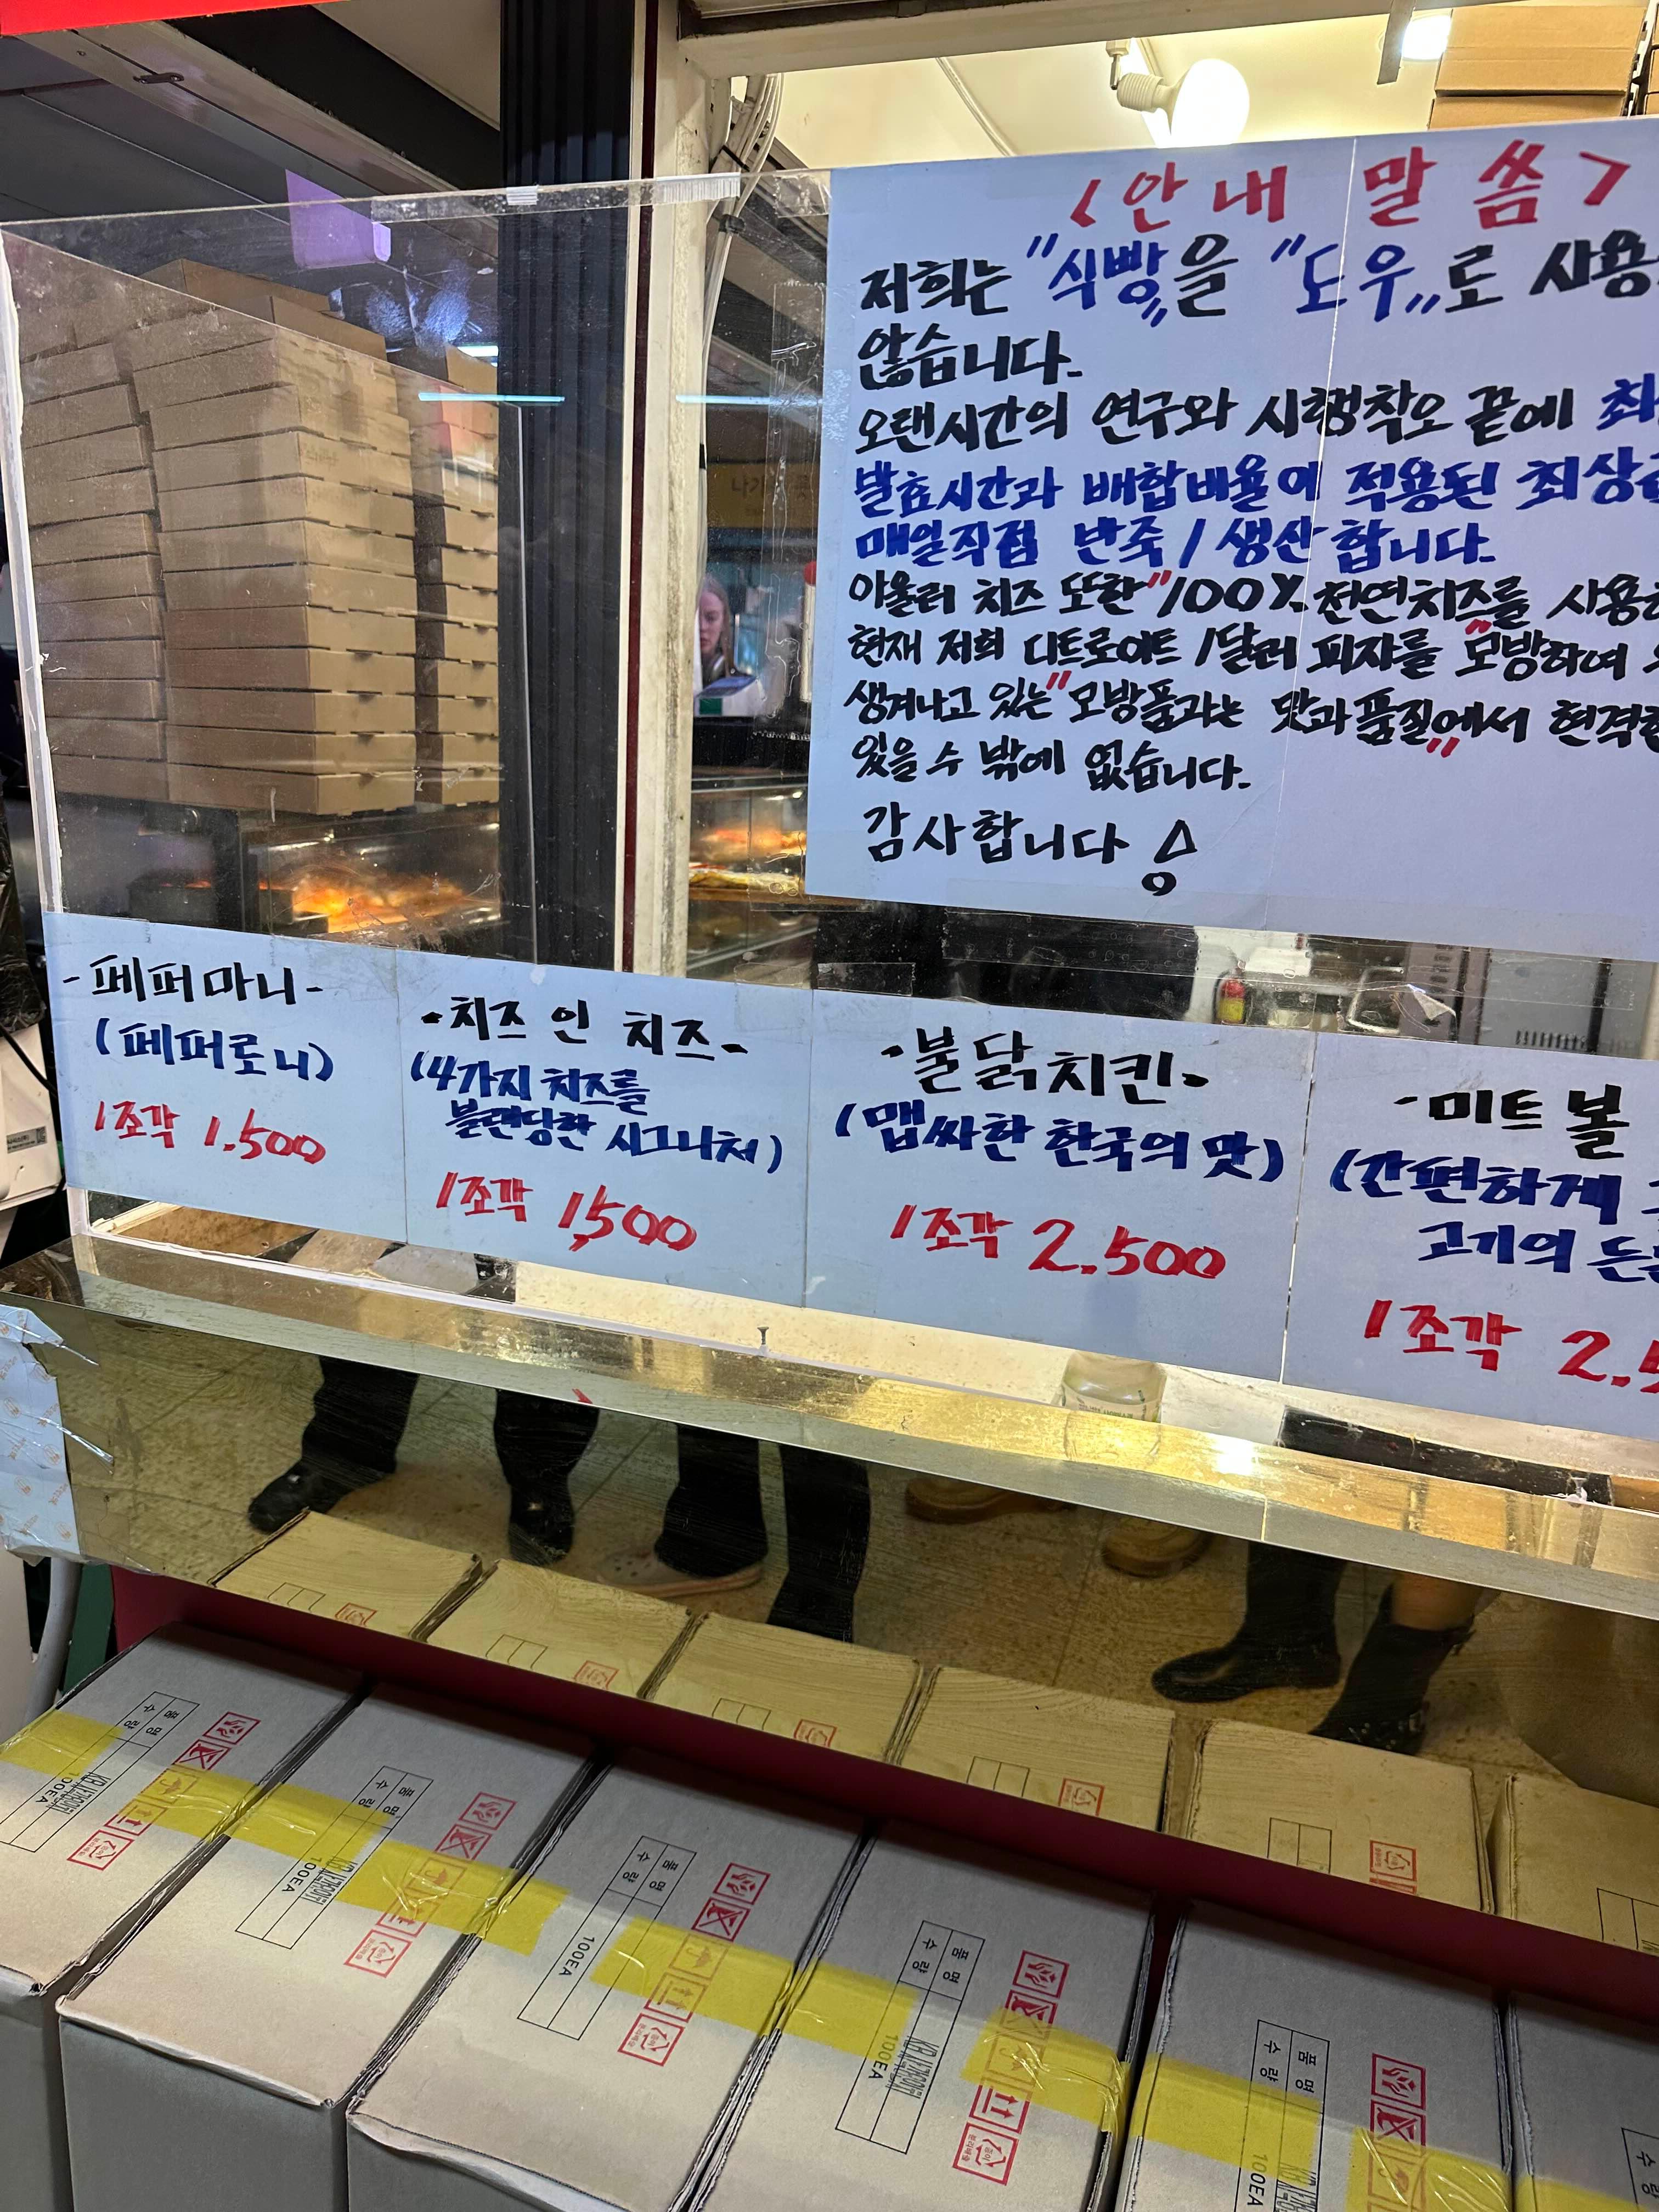 <안내 말씀>
저희는 "식빵"을 "도우"로 사용
않습니다.
오랜시간의 연구와 시행착오 끝에 최
발효시간과 배합비율이 적용된 최상
매일직접 반죽/생산합니다.
아울러 치즈 또한 "100% 천연치즈를 사용
현재 저희 디트로이트 1달러 피자를 "모방하여
생겨나고 있는" 모방품과는 맛과품질"에서 현격
있을 수 밖에 없습니다.
감사합니다!
-페퍼마니-
(페퍼로니)
1조각 1.500
-치즈 인 치즈-
(4가지 치즈를
블렌딩한 시그니처)
1조각 1,500
-불닭치킨-
(맵싸한 한국의 맛)
1조각 2.500
-미트볼
(간편하게
고기의 든
1조각 2.5
품명
수량
100EA
품명
수량
100EA
품명
수량
100EA
품명
수량
100EA
품명
수량
100EA